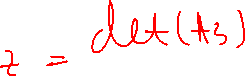 z = det(A3)